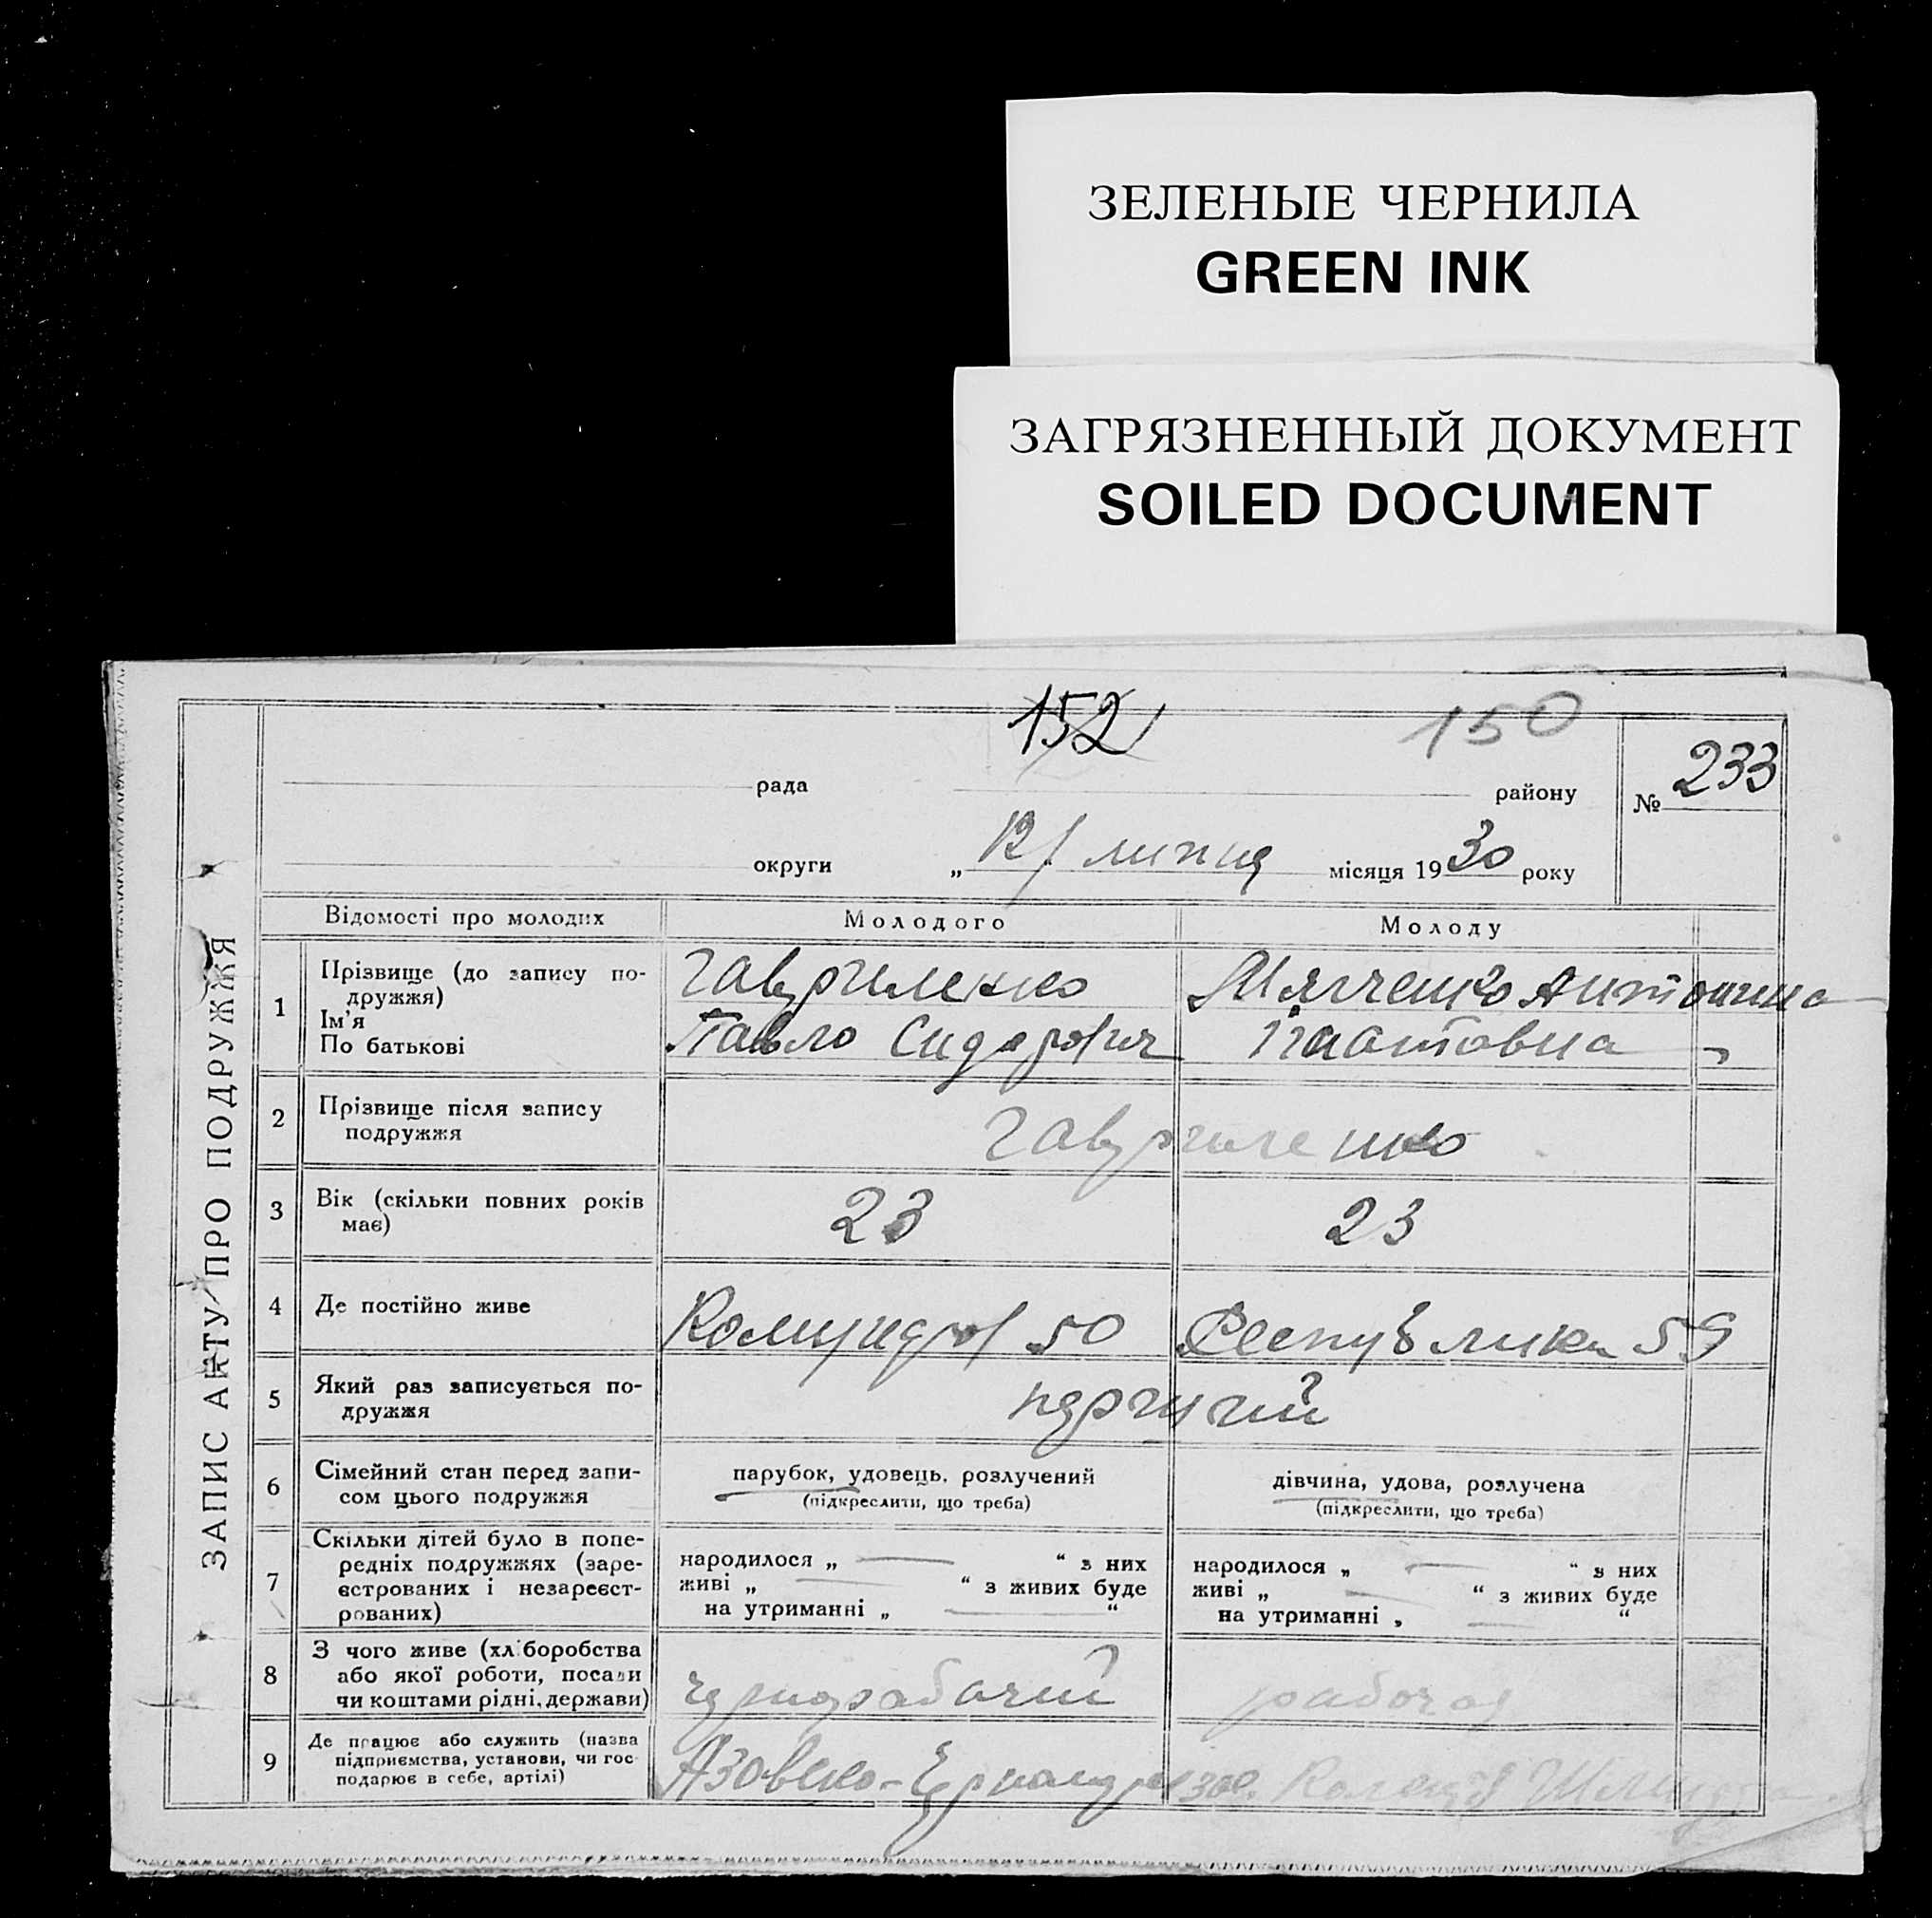 ЗЕЛЕНЫЕ ЧЕРНИЛА
GREEN INK
ЗАГРЯЗНЕННЫЙ ДОКУМЕНТ
SOILED DOCUMENT
152 150
рада району № 233
округи „ 12/ липня місяця 1930 року
ЗАПИС АКТУ ПРО ПОДРУЖЖЯ
Відомості про молодих Молодого Молоду
1 Прізвище (до запису по-
дружжя)
Ім'я
По батькові
Гавриленко
Павло Сидорович
Антонина
2 Прізвище після запису
подружжя
Гавриленко
3 Вік (скільки повних років
має)
23 23
4 Де постійно живе
50 Республики 59
5 Який раз записується по-
дружжя
6 Сімейний стан перед запи-
сом цього подружжя
парубок, удовець, розлучений
(підкреслити, що треба)
дівчина, удова, розлучена
(підкреслити, що треба)
7 Скільки дітей було в попе-
редніх подружжях (заре-
єстрованих і незареєст-
рованих)
народилося „ — “ з них
живі „ — “ з живих буде
на утриманні „ — “
народилося „ — “ з них
живі „ — “ з живих буде
на утриманні „ — “
8 З чого живе (хліборобства
або якої роботи, посади
чи коштами рідні, держави)
чернорабочий рабочая
9 Де працює або служить (назва
підприємства, установи, чи гос-
подарює в себе, артілі)
Азовско-Черномор